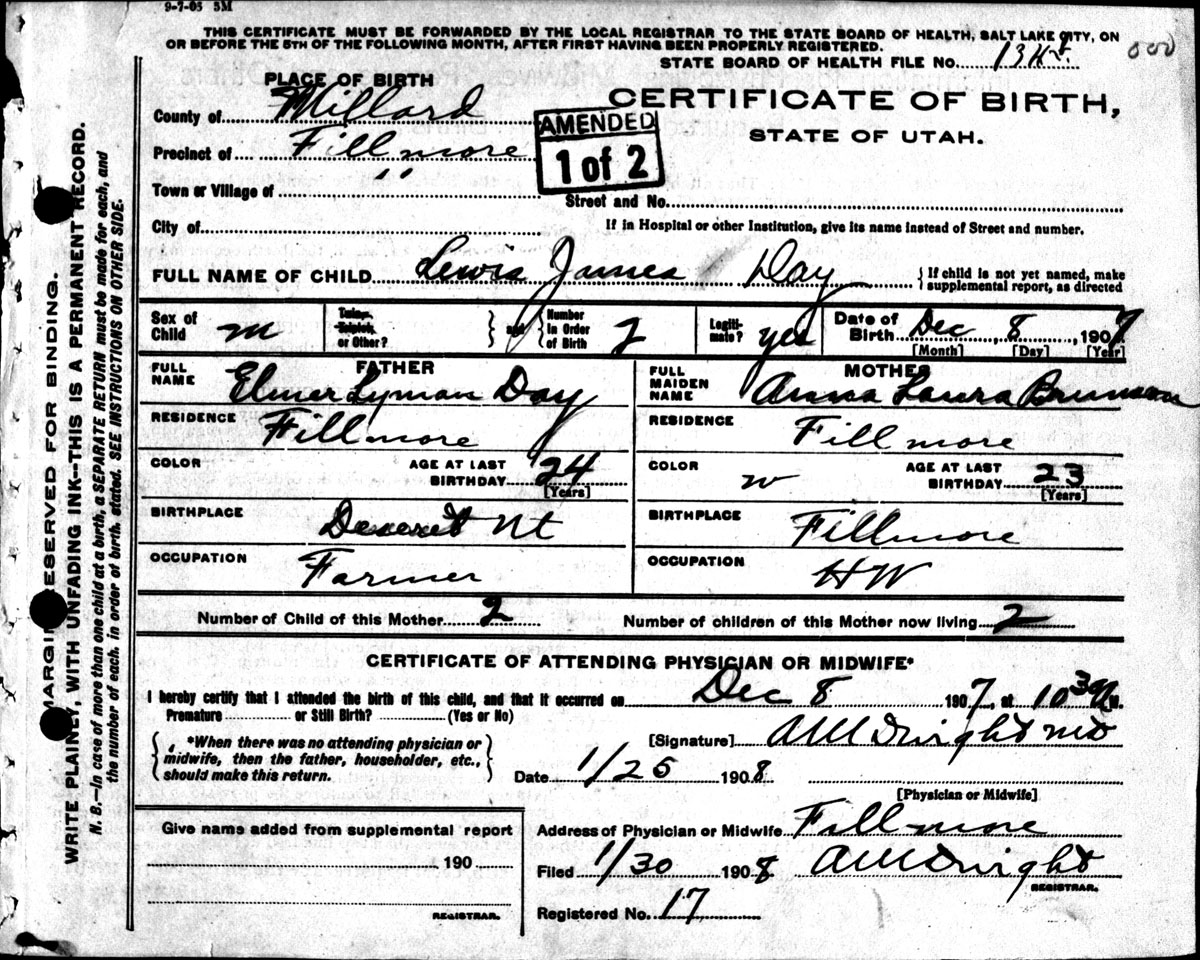 9-7-05 5M
THIS CERTIFICATE MUST BE FORWARDED BY THE LOCAL REGISTRAR TO THE STATE BOARD OF HEALTH, SALT LAKE CITY, ON
OR BEFORE THE 5TH OF THE FOLLOWING MONTH, AFTER FIRST HAVING BEEN PROPERLY REGISTERED.
STATE BOARD OF HEALTH FILE NO.
000
PLACE OF BIRTH
CERTIFICATE OF BIRTH,
STATE OF UTAH.
County of Millard
AMENDED
1 of 2
Precinct of Fillmore
Town or Village of "
Street and No.
City of
If in Hospital or other Institution, give its name instead of Street and number.
FULL NAME OF CHILD Lewis James Day
{ If child is not yet named, make
supplemental report, as directed
Sex of Child m
Twins, Triplet, or Other? } and { Number in Order of Birth 2
Legitimate? yes
Date of Birth Dec 8, 1907
[Month] [Day] [Year]
FATHER
FULL NAME Elmer Lyman Day
MOTHER
FULL MAIDEN NAME Anna Laura Brunson
RESIDENCE Fillmore
RESIDENCE Fillmore
COLOR AGE AT LAST BIRTHDAY 24 [Years]
COLOR w AGE AT LAST BIRTHDAY 23 [Years]
BIRTHPLACE Deseret
BIRTHPLACE Fillmore
OCCUPATION Farmer
OCCUPATION HW
Number of Child of this Mother 2
Number of children of this Mother now living 2
CERTIFICATE OF ATTENDING PHYSICIAN OR MIDWIFE*
I hereby certify that I attended the birth of this child, and that it occurred on Dec 8 1907, at 10 30 M.
Premature or Still Birth? (Yes or No)
{ *When there was no attending physician or
midwife, then the father, householder, etc.,
should make this return. }
[Signature] Dwight MD
Date 1/25 1908
[Physician or Midwife]
Give name added from supplemental report
190
REGISTRAR.
Address of Physician or Midwife Fillmore
Filed 1/30 1908 Dwight
REGISTRAR.
Registered No. 17
MARGIN RESERVED FOR BINDING.
WRITE PLAINLY, WITH UNFADING INK--THIS IS A PERMANENT RECORD.
N. B.—In case of more than one child at a birth, a SEPARATE RETURN must be made for each, and
the number of each, in order of birth, stated. SEE INSTRUCTIONS ON OTHER SIDE.